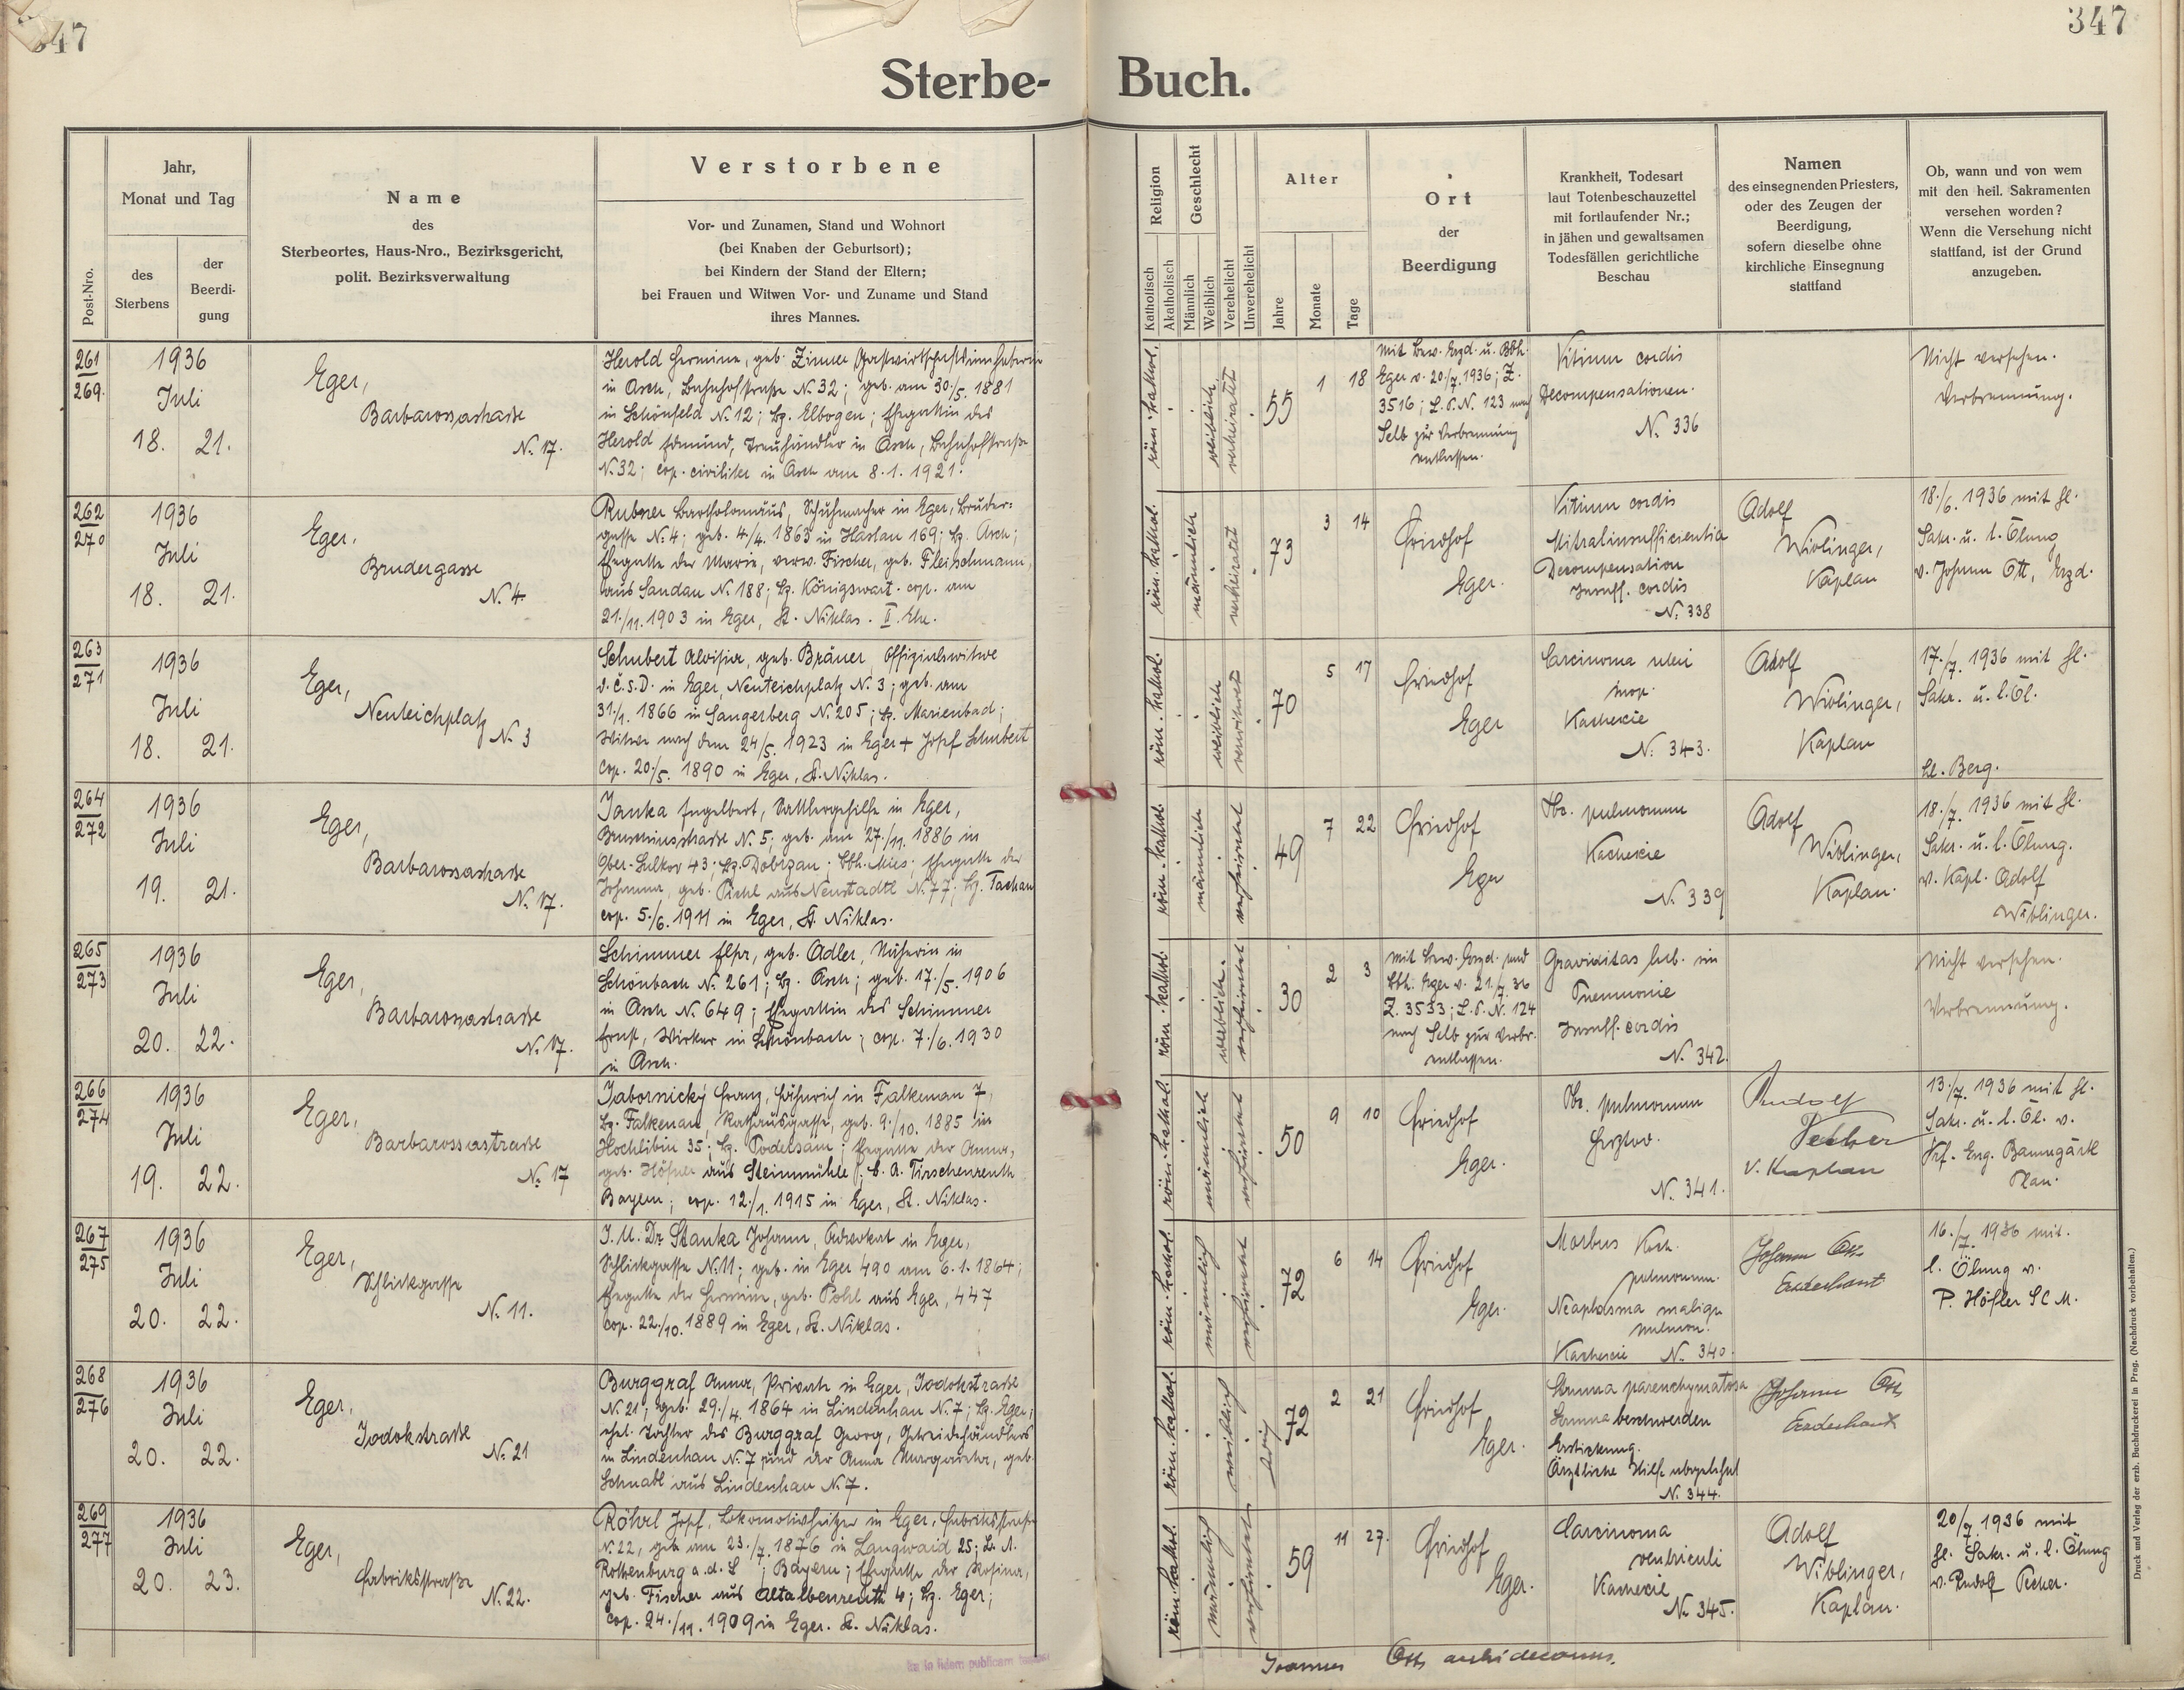 347
347
Sterbe- Buch.
Post-Nro.
Jahr,
Monat und Tag
des
Sterbens
der
Beerdi-
gung
Name
des
Sterbeortes, Haus-Nro., Bezirksgericht,
polit. Bezirksverwaltung
Verstorbene
Vor- und Zunamen, Stand und Wohnort
(bei Knaben der Geburtsort);
bei Kindern der Stand der Eltern;
bei Frauen und Witwen Vor- und Zuname und Stand
ihres Mannes.
Religion
Katholisch
Akatholisch
Geschlecht
Männlich
Weiblich
Verehelicht
Unverehelicht
Alter
Jahre
Monate
Tage
Ort
der
Beerdigung
Krankheit, Todesart
laut Totenbeschauzettel
mit fortlaufender Nr.;
in jähen und gewaltsamen
Todesfällen gerichtliche
Beschau
Namen
des einsegnenden Priesters,
oder des Zeugen der
Beerdigung,
sofern dieselbe ohne
kirchliche Einsegnung
stattfand
Ob, wann und von wem
mit den heil. Sakramenten
versehen worden?
Wenn die Versehung nicht
stattfand, ist der Grund
anzugeben.
261
269.
1936
Juli
18. 21.
Eger,
Barbarossastraße
N. 17.
Herold Hermine, geb. Zinner, Gastwirtschaftsinhaberin
in Asch, Bahnhofstraße N. 32; geb. am 30./5. 1881
in Schönfeld N. 12; Bz. Elbogen; Ehegattin des
Herold Edmund, Treuhändler in Asch, Bahnhofstraße
N. 32; cop. civiliter in Asch am 8.1.1921.
röm. kathol.
weiblich
verheiratet
55 1 18
Mit Bew. Erzd. u. Bbh.
Eger v. 20./7. 1936; Z.
3516; L.P.N. 123 nach
Selb zur Verbrennung
entlassen.
Vitium cordis
Decompensationen.
N. 336
Nicht versehen.
Verbrennung.
262
270
1936
Juli
18. 21.
Eger,
Brudergasse
N. 4.
Rubner Bartholomäus, Schuhmacher in Eger, Bruder-
gasse N. 4; geb. 4/4. 1863 in Haslau 169; Bz. Asch;
Ehegatte der Marie, verw. Fischer, geb. Fleischmann,
aus Sandau N. 188; Bz. Königswart. cop. am
21./11. 1903 in Eger, St. Niklas. II. Ehe.
röm. kathol.
männlich
verheiratet
73 3 14
Friedhof
Eger.
Vitium cordis
Mitralinsufficientia
Decompensation
Insuff. cordis
N. 338
Adolf
Wiblinger,
Kaplan
18./6. 1936 mit hl.
Sakr. u. l. Ölung
v. Johann Ott, Erzd.
263
271
1936
Juli
18. 21.
Eger,
Neuteichplatz
N. 3
Schubert Aloisia, geb. Bräuer, Offizialswitwe
d. č.s.D. in Eger, Neuteichplatz N. 3; geb. am
31./1. 1866 in Sangerberg N. 205; Bz. Marienbad;
Witwe nach dem 24/5. 1923 in Eger + Josef Schubert
Cop. 20./5. 1890 in Eger, St. Niklas.
röm. kathol.
weiblich
verwitwet
70 5 17
Friedhof
Eger
Carcinoma uteri
inop.
Kachexie
N. 343.
Adolf
Wiblinger,
Kaplan
17./7. 1936 mit hl.
Sakr. u. l. Öl.
Berg.
264
272
1936
Juli
19. 21.
Eger,
Barbarossastraße
N. 17.
Janka Engelbert, Sattlergehilfe in Eger,
N. 5; geb. am 27./11. 1886 in
Ober-Sulkov 43; Bz. Dobrzan; Bbh. Mies; Ehegatte der
Johanna, geb. Pichl aus Neustadtl N. 77; Bz. Tachau
cop. 5./6. 1911 in Eger, St. Niklas.
röm. kathol.
männlich
verheiratet
49 7 22
Friedhof
Eger
Tbc. pulmonum
Kachexie
N. 339
Adolf
Wiblinger,
Kaplan.
18./7. 1936 mit hl.
Sakr. u. l. Ölung.
v. Kapl. Adolf
Wiblinger.
265
273
1936
Juli
20. 22.
Eger,
Barbarossastraße
N. 17.
Schimmer Elsa, geb. Adler, Näherin in
Schönbach N. 261; Bz. Asch; geb. 17./5. 1906
in Asch N. 649; Ehegattin des Schimmer
Ernst, Wirker in Schönbach; cop. 7./6. 1930
in Asch.
röm. kathol.
weiblich.
verheiratet
30 2 3
Mit Bew. Erzd. und
Bbh. Eger v. 21./7. 36
Z. 3533; L.P.N. 124
nach Selb zur Verbr.
entlassen.
Graviditas
Pneumonie
Insuff. cordis
N. 342.
Nicht versehen.
Verbrennung.
266
274
1936
Juli
19. 22.
Eger,
Barbarossastraße
N. 17
Jabornický Franz, Fähnrich in Falkenau 7,
Bz. Falkenau, Rathausgasse, geb. 9./10. 1885 in
Hochlibin 35; Bz. Podersam; Ehegatte der Anna,
geb. Höfner aus Steinmühle, B.A. Tirschenreuth
Bayern; cop. 12./1. 1915 in Eger, St. Niklas.
röm. kathol.
männlich
verheiratet
50 9 10
Friedhof
Eger.
Tbc. pulmonum
N. 341.
Rudolf
Pecher
V. Kaplan
13./7. 1936 mit hl.
Sakr. u. l. Öl. v.
Prf. Eug. Baumgärtl
Plan.
267
275
1936
Juli
20. 22.
Eger,
Schlickgasse
N. 11.
J.U. Dr. Stanka Johann, Advokat in Eger,
Schlickgasse N. 11; geb. in Eger 490 am 6.1.1864;
Ehegatte der Hermine, geb. Pohl aus Eger, 447
cop. 22./10. 1889 in Eger, St. Niklas.
röm. kathol.
männlich
verheiratet
72 6 14
Friedhof
Eger.
Morbus Koch.
pulmonum.
Neaplasma malign
pulmon.
Kachexie N. 340.
Johann Ott
Erzdechant
16./7. 1936 mit.
l. Ölung v.
P. Höfler SCM.
268
276
1936
Juli
20. 22.
Eger,
Jodokstraße
N. 21
Burggraf Anna, Private in Eger, Jodokstraße
N. 21; geb. 29./4. 1864 in Lindenhau N. 7; Bz. Eger;
ehel. Tochter des Burggraf Georg, Getreidehändlers
in Lindenhau N. 7 und der Anna Margareta, geb.
Schnabl aus Lindenhau N. 7.
röm. kathol.
weiblich
ledig
72 2 21
Friedhof
Eger.
Struma parenchymatosa
Struma beschwerden
Erstickung.
Ärztliche Hilfe abgelehnt
N. 344.
Johann Ott
Erzdechant
269
277
1936
Juli
20. 23.
Eger,
Fabriksstraße
N. 22.
Röhrl Josef, Lokomotivheizer in Eger, Fabriksstraße
N. 22, geb. am 23./7. 1876 in Langwaid 25; B.A.
Rottenburg a.d. L; Bayern; Ehegatte der Rosina,
geb. Fischer aus Altalbenreuth 4; Bz. Eger;
cop. 24./11. 1909 in Eger. St. Niklas.
röm. kathol.
männlich
verheiratet
59 11 27.
Friedhof
Eger.
Carcinoma
ventriculi
Kachexie
N. 345.
Adolf
Wiblinger,
Kaplan.
20/7. 1936 mit
hl. Sakr. u. l. Ölung
v. Rudolf Pecher.
Joannes Ott archidecanus.
in fidem publicam
Druck und Verlag der erzb. Buchdruckerei in Prag. (Nachdruck vorbehalten.)